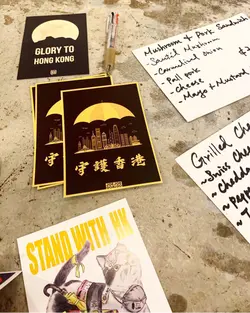 GLORY TO
HONG KONG
守護香港
守
Mushroom & Pork Sandwich
- Sautéd Mushroom
- Caramelized Onion
- Pull pork
- Cheese
- Mayo & Mustard
Grilled Chees
~ Swiss Chees
~ Chedda
~ Pep
STAND WITH HK